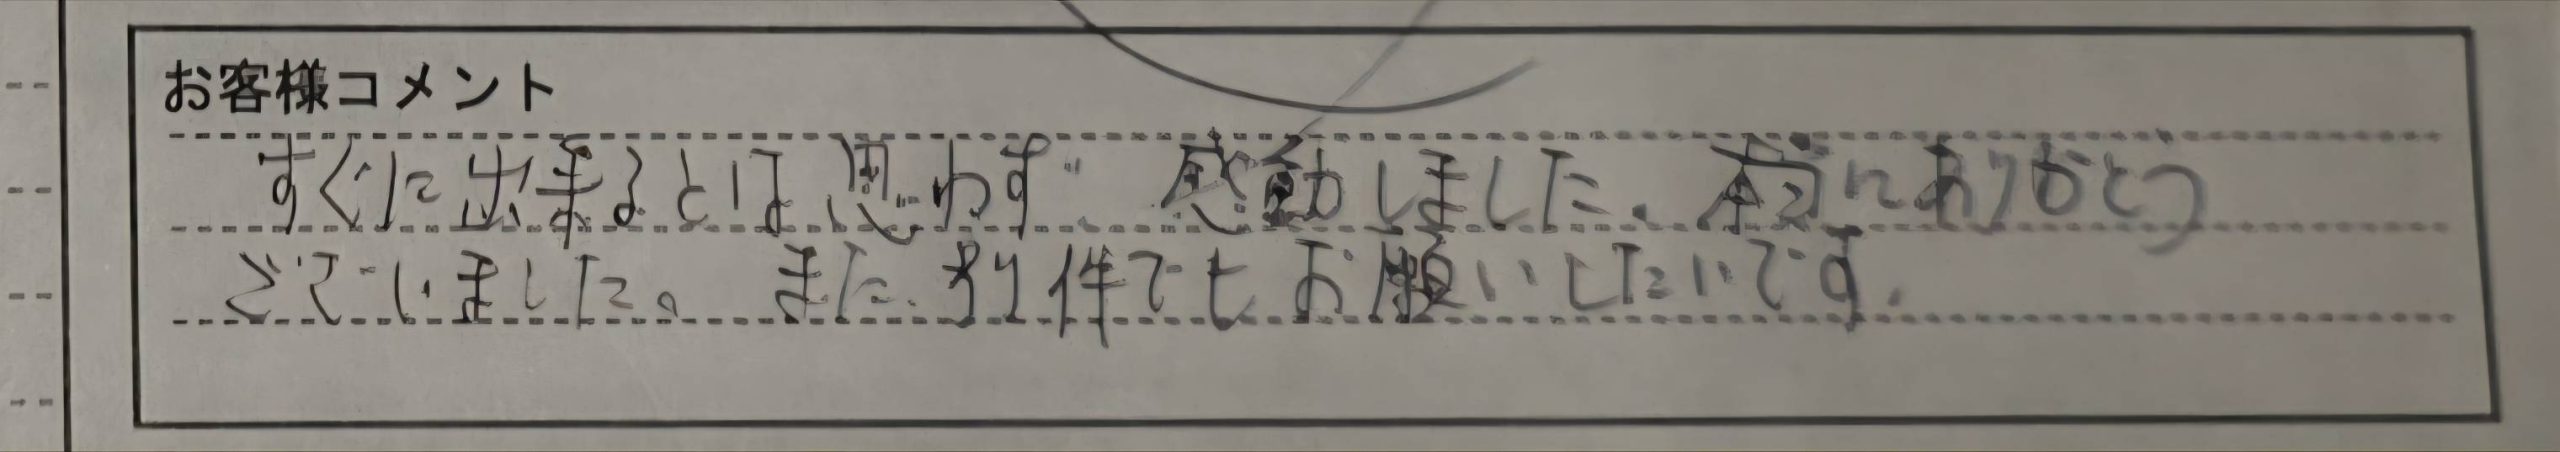 お客様コメント
すぐに出来るとは思わず 感動しました、本当にありがとう
ございました。また、別件でもお願いしたいです.